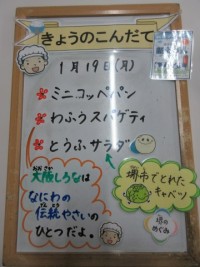 きょうのこんだて
1月19日(月)
ミニコッペパン
わふうスパゲティ
とうふサラダ
大阪しろなは
なにわの
伝統やさいの
ひとつだよ。
堺市でとれた
キャベツ
堺のめぐみ